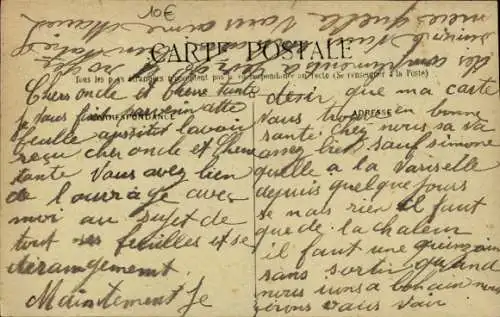 10€
CARTE POSTALE
Tous les pays étrangers n'acceptent pas la correspondance au recto (Se renseigner à la Poste)
CORRESPONDANCE
ADRESSE
Chers oncle et chere tante
je vous fais parvenir cette
feuille aussitot lavoir
reçu cher oncle et chere
tante vous avez bien
de l'ouvrage avec
moi au sujet de
tout ses feuilles et se
derangement.
Maintement Je
désir que ma carte
vous trouve en bonne
santé chez nous sa va
assez bien sauf simone
qu'elle a la variselle
depuis quelque jours
se nais rien il faut
que de la chaleur
il faut une quinzaine
sans sortir quand
nous irons a bohain nous
irons vous vair